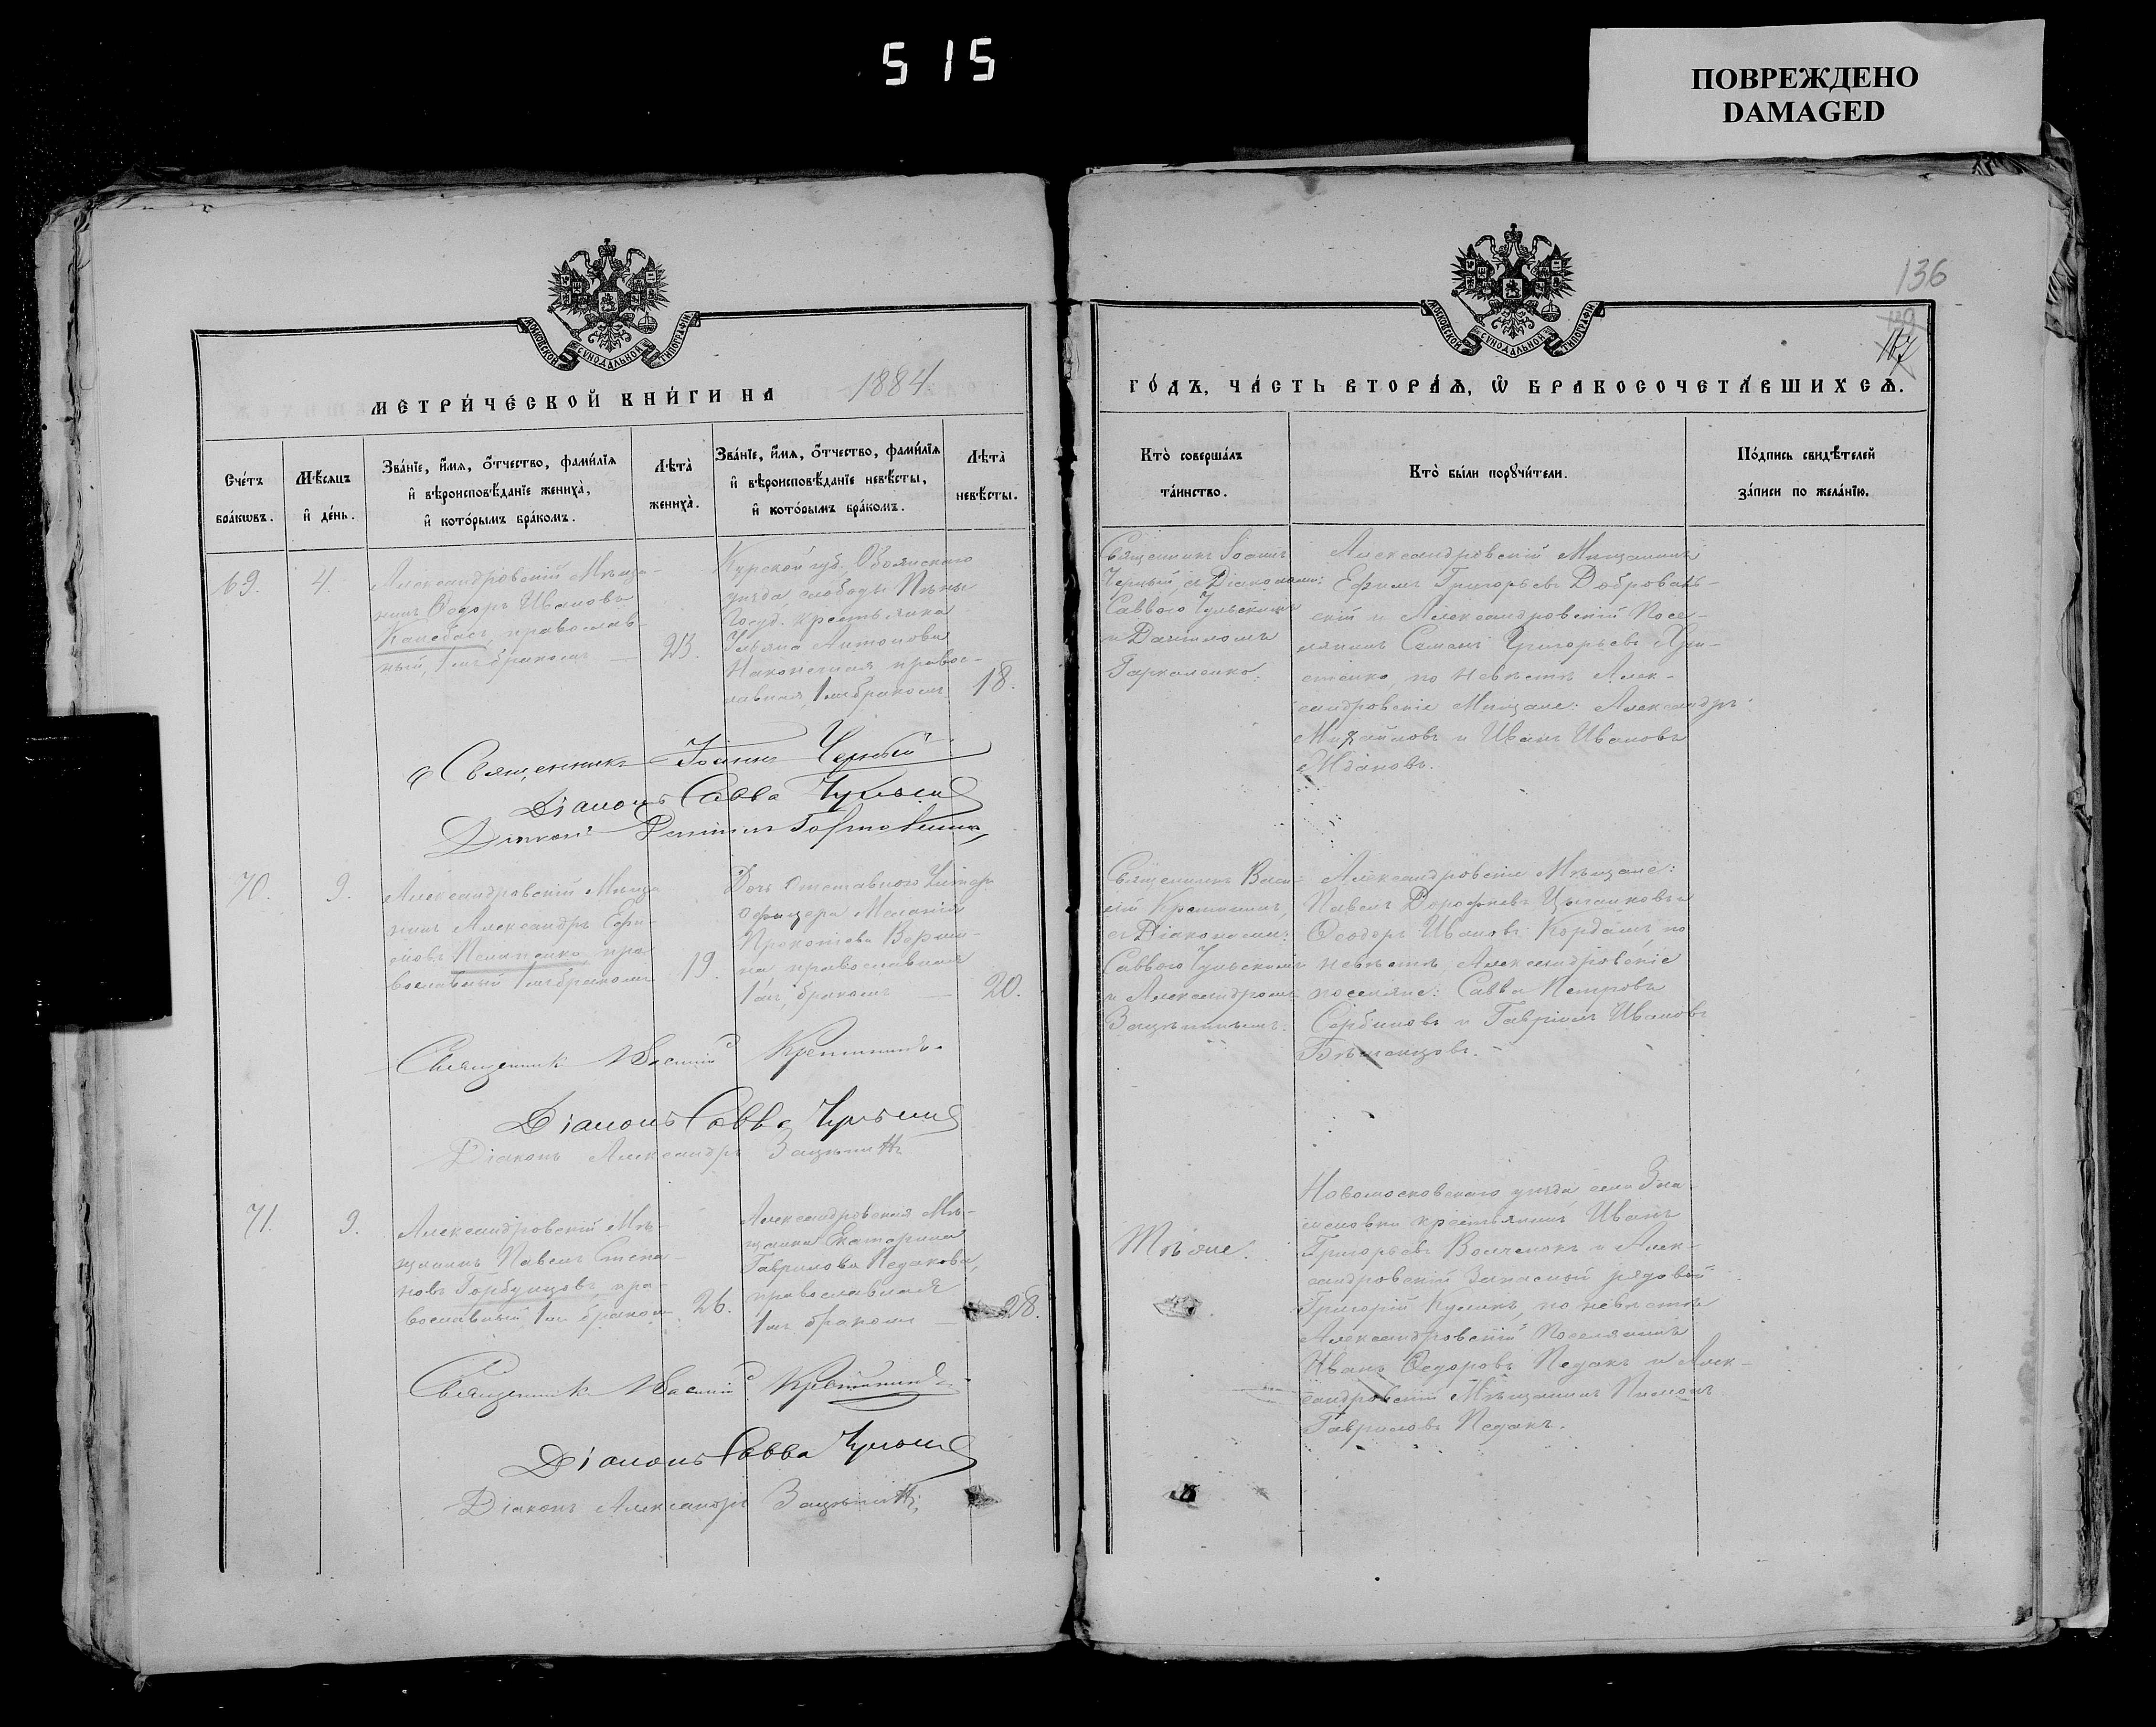 515
ПОВРЕЖДЕНО
DAMAGED
136
МОСКОВСКОЙ СѴНОДАЛЬНОЙ ТИПОГРАФІИ
МОСКОВСКОЙ СѴНОДАЛЬНОЙ ТИПОГРАФІИ
МЕТРИЧЕСКОЙ КНИГИ НА 1884
ГОДЪ, ЧАСТЬ ВТОРАѦ, Ѡ БРАКОСОЧЕТАВШИХСѦ.
Счетъ браковъ.
Мѣсяцъ и день.
Званіе, имя, отчество, фамилія
и вѣроисповѣданіе жениха,
и которымъ бракомъ.
Лѣта жениха.
Званіе, имя, отчество, фамилія
и вѣроисповѣданіе невѣсты,
и которымъ бракомъ.
Лѣта невѣсты.
Кто совершалъ
таинство.
Кто были поручители.
Подпись свидѣтелей
записи по желанію.
69.
4.
Александровскій Мѣща-
нинъ Ѳедоръ Ивановъ
православ-
ный, 1мъ бракомъ
23.
Курской губ. Обоянскаго
уѣзда, слободы Пѣны
Госуд. крестьянка
Ульяна Антонова
Наконечная правос-
лавная, 1мъ бракомъ
18.
Священникъ Іоаннъ
Черный, съ Діаконами:
Саввою Чульскимъ
и Даніиломъ
Александровскій Мѣщанинъ
Ефимъ Григорьевъ Доброволь-
скій и Александровскій Посе-
лянинъ Семенъ Григорьевъ Хри-
стенко, по невѣстѣ Алек-
сандровскіе Мѣщане: Александръ
Михайловъ и Иванъ Ивановъ
Ждановъ.
Священникъ Іоаннъ Черный
Діаконъ Савва
Діаконъ
70.
9.
Александровскій Мѣща
нинъ Александръ Ефи-
мовъ Пелипенко, пра-
вославный 1мъ бракомъ
19.
Дочь отставного Унтеръ
офицера Меланія
Прокопіева
православная
1мъ бракомъ
20.
Священникъ Васи-
лій
съ Діаконами:
Саввою Чульскимъ
и Александромъ
Александровскіе Мѣщане:
Павелъ Дорофѣевъ Цыганковъ и
Ѳеодоръ Ивановъ по
невѣстѣ, Александровскіе
поселяне: Савва Петровъ
Сербиновъ и Гавріилъ Ивановъ
Священникъ Василій
Діаконъ Савва
Діаконъ Александръ
71.
9.
Александровскій Мѣ-
щанинъ Павелъ Степа-
новъ Горбунцовъ, пра-
вославный 1мъ бракомъ
26.
Александровская Мѣ-
щанка Екатерина
Гаврилова Педакова,
православная
1мъ бракомъ
28.
Тѣ же.
Новомосковскаго уѣзда, села Зна-
меновки крестьянинъ Иванъ
Григорьевъ Волченокъ и Алек-
сандровскій Запасной рядовой
Григорій Куликъ, по невѣстѣ
Александровскій Поселянинъ
Иванъ Ѳедоровъ Педакъ и Алек-
сандровскій Мѣщанинъ
Гавриловъ Педакъ.
Священникъ Василій
Діаконъ Савва
Діаконъ Александръ